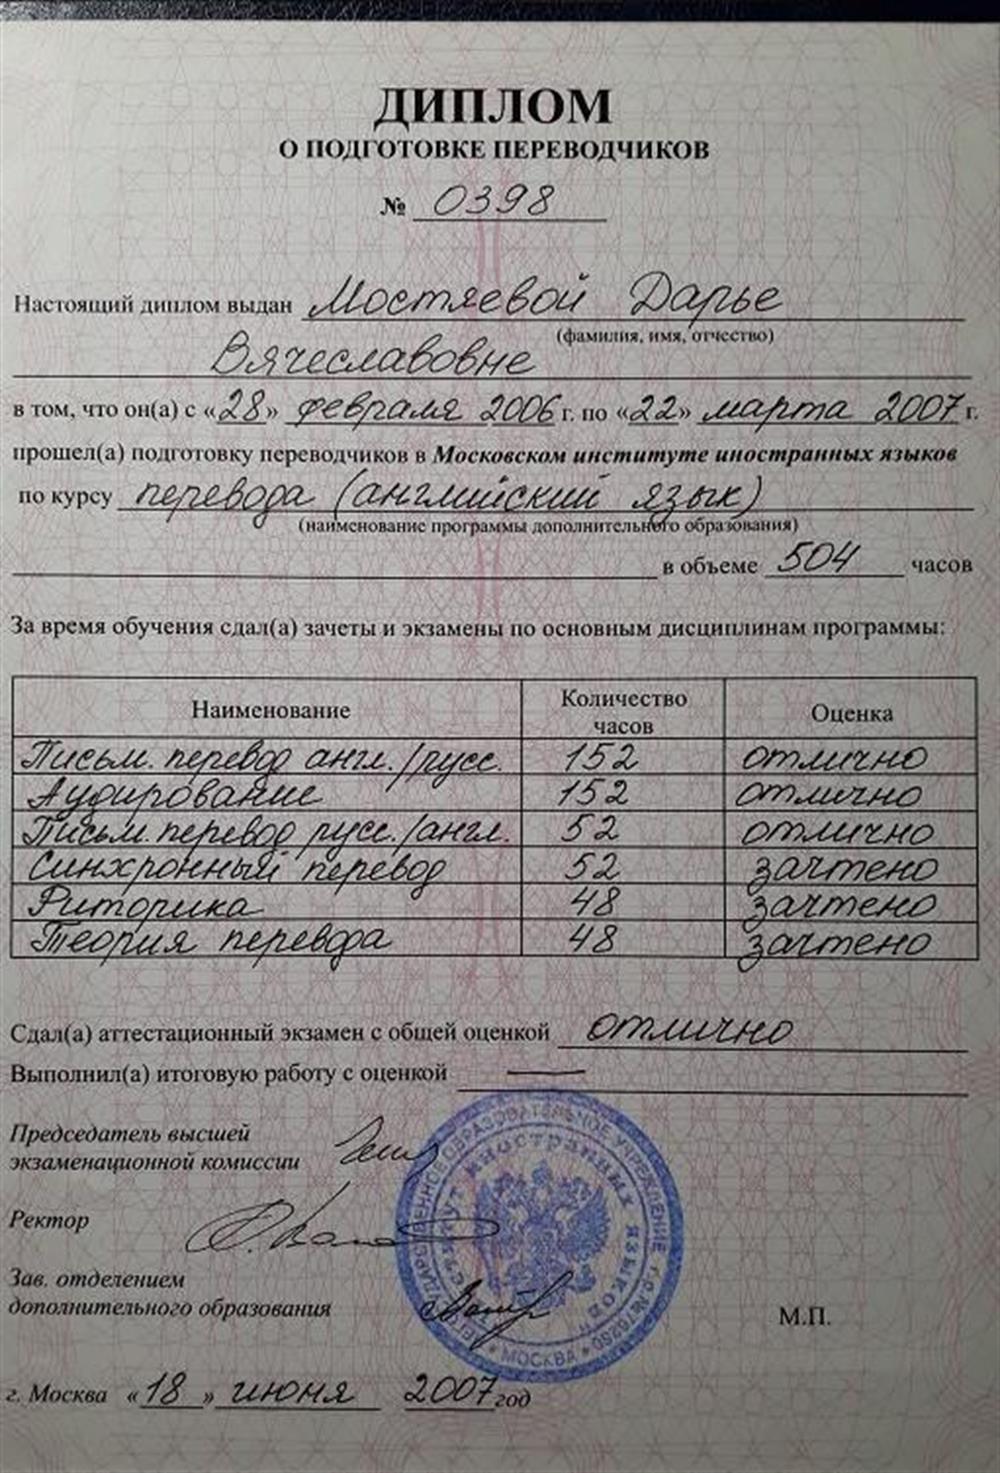 ДИПЛОМ
О ПОДГОТОВКЕ ПЕРЕВОДЧИКОВ
№ 0398
Настоящий диплом выдан Мостяевой Дарье
(фамилия, имя, отчество)
Вячеславовне
в том, что он(а) с «28» февраля 2006 г. по «22» марта 2007 г.
прошел(а) подготовку переводчиков в Московском институте иностранных языков
по курсу перевода (английский язык)
(наименование программы дополнительного образования)
в объеме 504 часов
За время обучения сдал(а) зачеты и экзамены по основным дисциплинам программы:
Наименование Количество часов Оценка
Письм. перевод англ./русс. 152 отлично
Аудирование 152 отлично
Письм. перевод русс./англ. 52 отлично
Синхронный перевод 52 зачтено
Риторика 48 зачтено
Теория перевода 48 зачтено
Сдал(а) аттестационный экзамен с общей оценкой отлично
Выполнил(а) итоговую работу с оценкой —
Председатель высшей
экзаменационной комиссии
Ректор
Зав. отделением
дополнительного образования
М.П.
ОБРАЗОВАТЕЛЬНОЕ УЧРЕЖДЕНИЕ
ИНОСТРАННЫХ ЯЗЫКОВ
МОСКВА
г. Москва «18» июня 2007 год